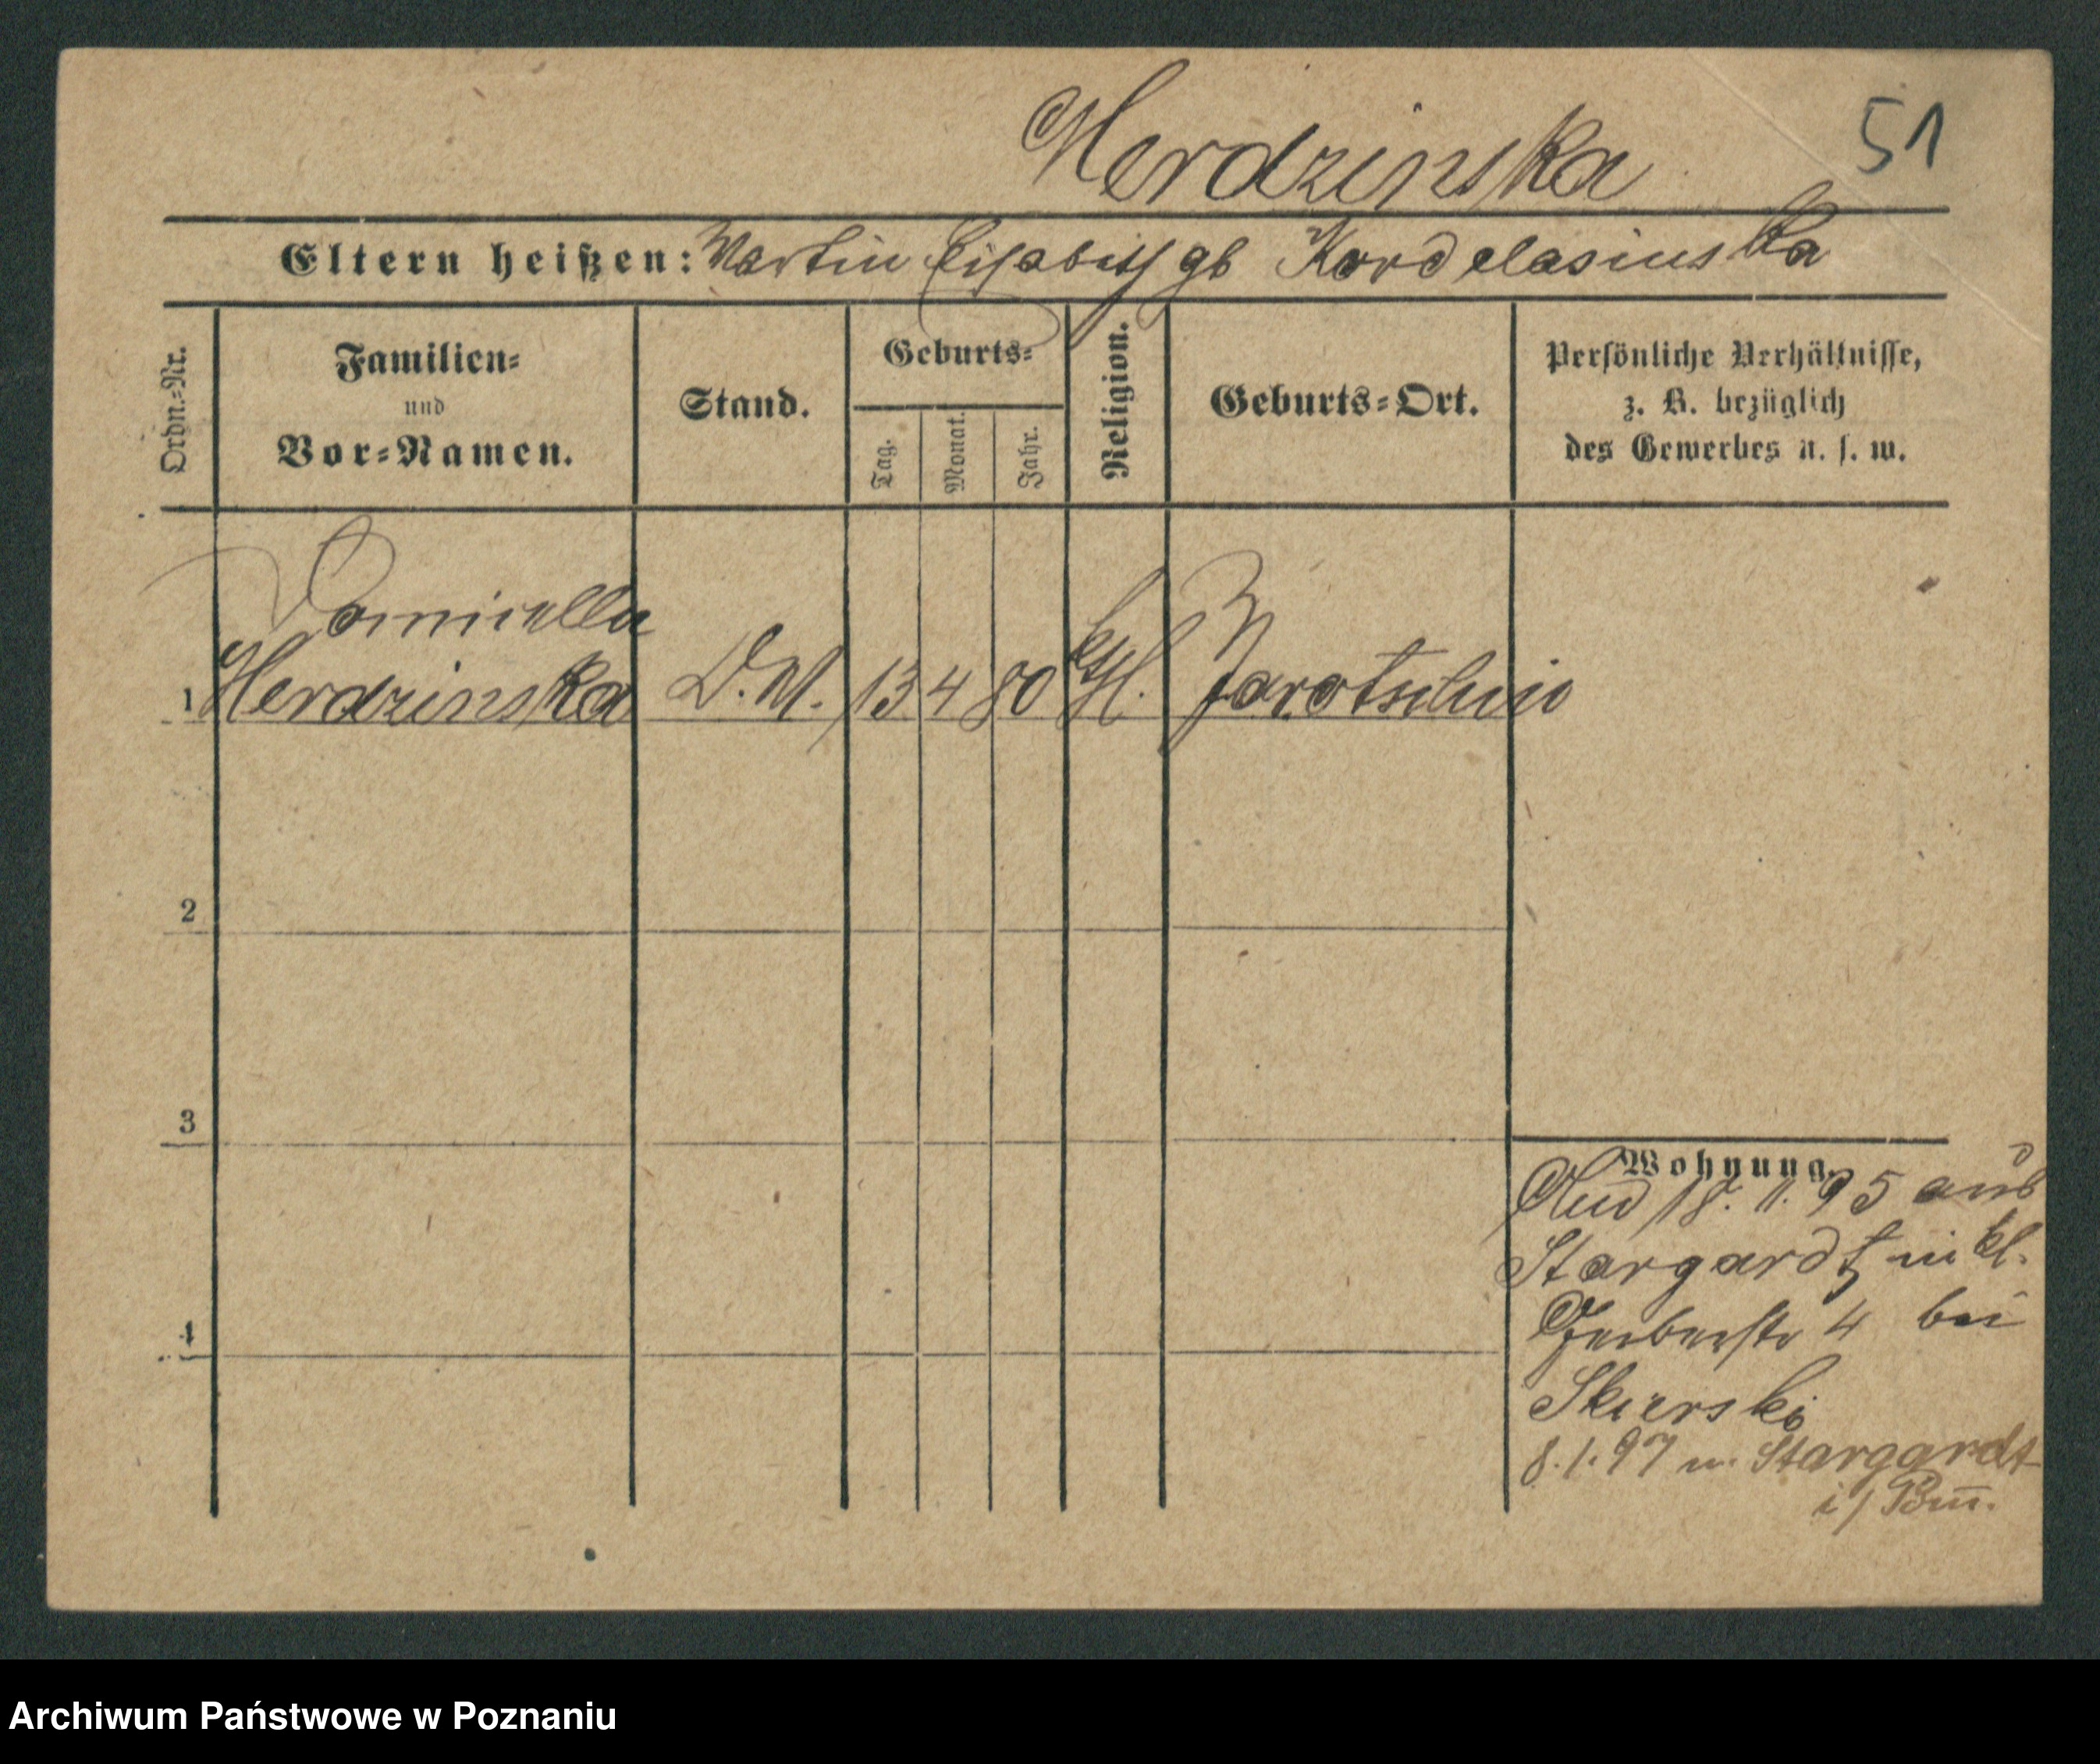 51
Herdzinska
Eltern heißen: Martin Elisabeth gb Kordelasinska
Ordn.-Nr.
Familien-
und
Vor-Namen.
Stand.
Geburts-
Tag.
Monat.
Jahr.
Religion.
Geburts-Ort.
Persönliche Verhältnisse,
z. B. bezüglich
des Gewerbes u. s. w.
1 Domicella
Herdzinska D.M. 13 4 80 kth. Jarotschin
2
3
4
Wohnung.
18. 11. 95 aus
Stargardt in kl.
Gerberstr 4 bei
Skierski
8.1.97 n. Stargardt
i/Pm.
Archiwum Państwowe w Poznaniu